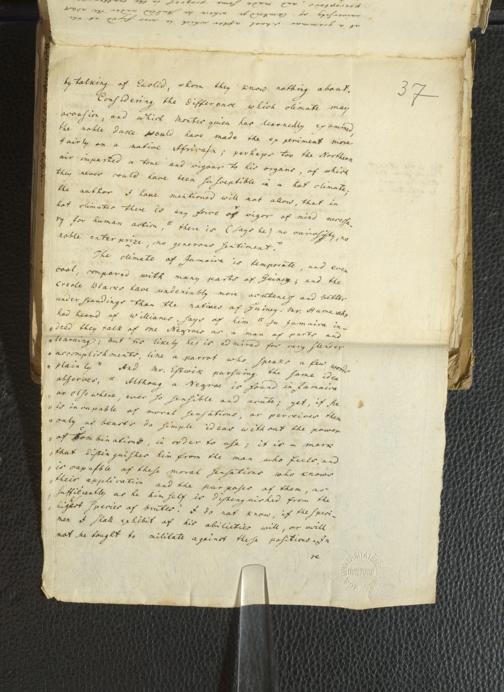 37
by talking of Euclid, whom they know nothing about.
Considering the difference which climate may
occasion, and which Montesquieu has learnedly examined,
the noble Duke would have made the experiment more
fairly on a native African; perhaps too the Northern
air imparted a tone and vigour to his organs, of which
they never could have been susceptible in a hot climate;
the author I have mentioned will not alow, that in
hot climates there is any force or vigor of mind necessa-
ry for human action, "there is (says he) no curiosity, no
noble enterprize, no generous sentiment."
The climate of Jamaica is temperate, and even
cool, compared with many parts of Guiney; and the
Creole Blacks have undeniably more acuteness and better
understandings than the natives of Guiney. Mr. Hume who
had heard of Williams, says of him "In Jamaica in-
deed they talk of one Negroe as a man of parts and
learning; but 'tis likely he is admired for very slender
accomplishments, like a parrot who speaks a few words
plainly" And Mr. Estwick pursuing the same idea
observes, "Althoug a Negroe is found in Jamaica
or elsewhere, ever so sensible and acute; yet, if he
is incapable of moral sensations, or perceives them
only as beasts do simple ideas without the power
of Combination, in order to use; it is a mark
that distinguishes him from the man who feels, and
is capable of these moral sensations who knows
their application and the purposes of them, as
sufficiently as he himself is distinguished from the
highest species of brutes." I do not know, if the speci-
men I shall exhibit of his abilities will, or will
not be tought to militate against these positions. In